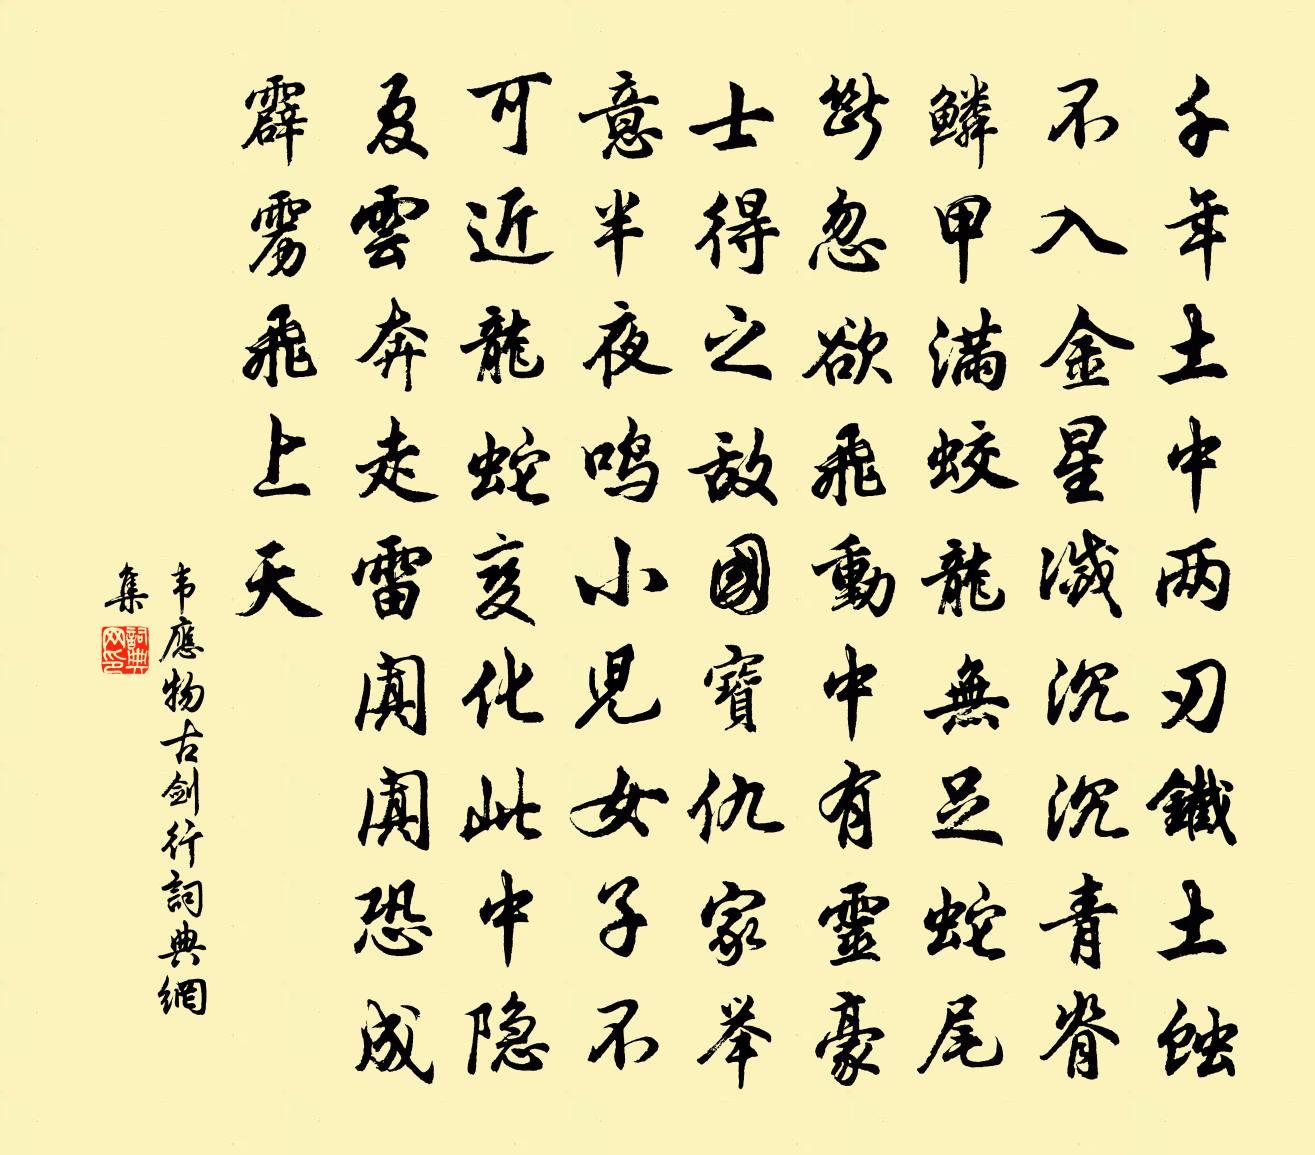 千年土中两刃鐵土蝕
不入金星滅沉沉青脊
鱗甲滿蛟龍無足蛇尾
斷忽欲飛動中有靈豪
士得之敌國寶仇家举
意半夜鸣小兒女子不
可近龍蛇变化此中隐
夏雲奔走雷闐闐恐成
霹雳飛上天
韦應物古劍行詞典網
集
詞典网印